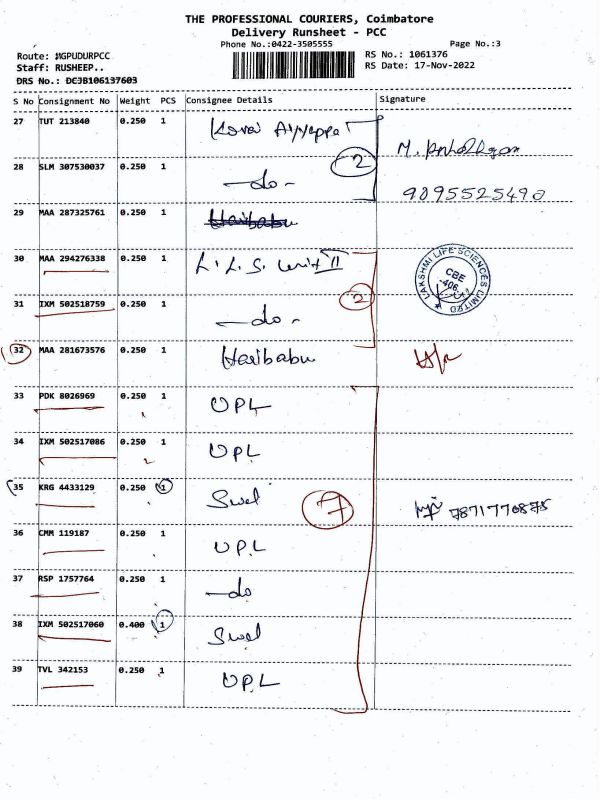 THE PROFESSIONAL COURIERS, Coimbatore
Delivery Runsheet - PCC
Phone No.:0422-3505555
Page No.:3
Route: MGPUDURPCC
RS No.: 1061376
Staff: RUSHEEP..
RS Date: 17-Nov-2022
DRS No.: DCJB106137603
S No Consignment No Weight PCS Consignee Details Signature
27 TUT 213840 0.250 1 Kovai Ayyappa
M.
28 SLM 307530037 0.250 1 -do- 2
9095525490
29 MAA 287325761 0.250 1 Haribabu
30 MAA 294276338 0.250 1 L.L.S. Unit II
LAKSHMI LIFE SCIENCES LIMITED
CBE
31 IXM 502518759 0.250 1 -do- 2
32 MAA 281673576 0.250 1 Haribabu
33 PDK 8026969 0.250 1 UPL
34 IXM 502517086 0.250 1 UPL
35 KRG 4433129 0.250 1 Swel 7 7871770875
36 CMM 119187 0.250 1 U.P.L
37 RSP 1757764 0.250 1 -do
38 IXM 502517060 0.400 1 Swel
39 TVL 342153 0.250 1 U.P.L